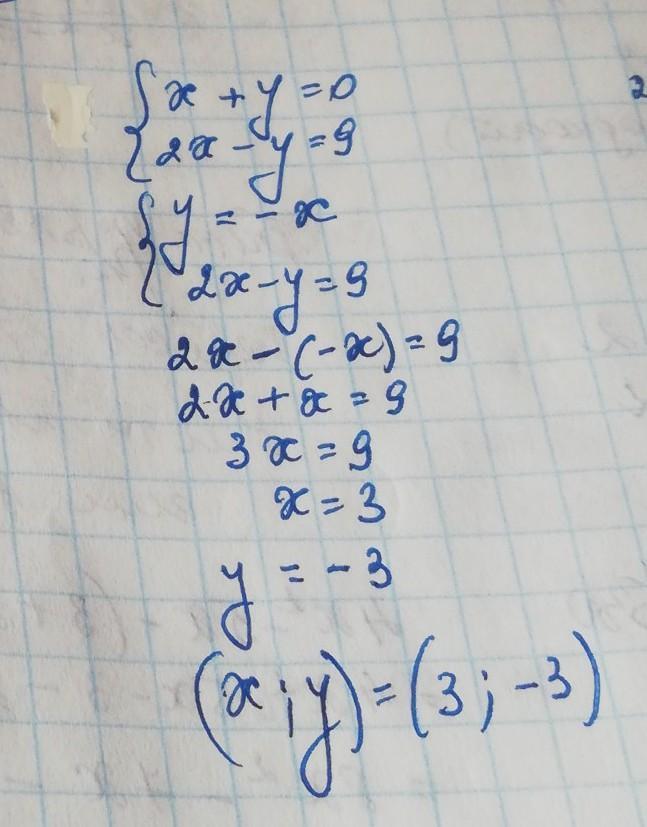 { x + y = 0
2x - y = 9
{ y = - x
2x - y = 9
2x - (-x) = 9
2x + x = 9
3x = 9
x = 3
y = - 3
(x ; y) = (3 ; -3)